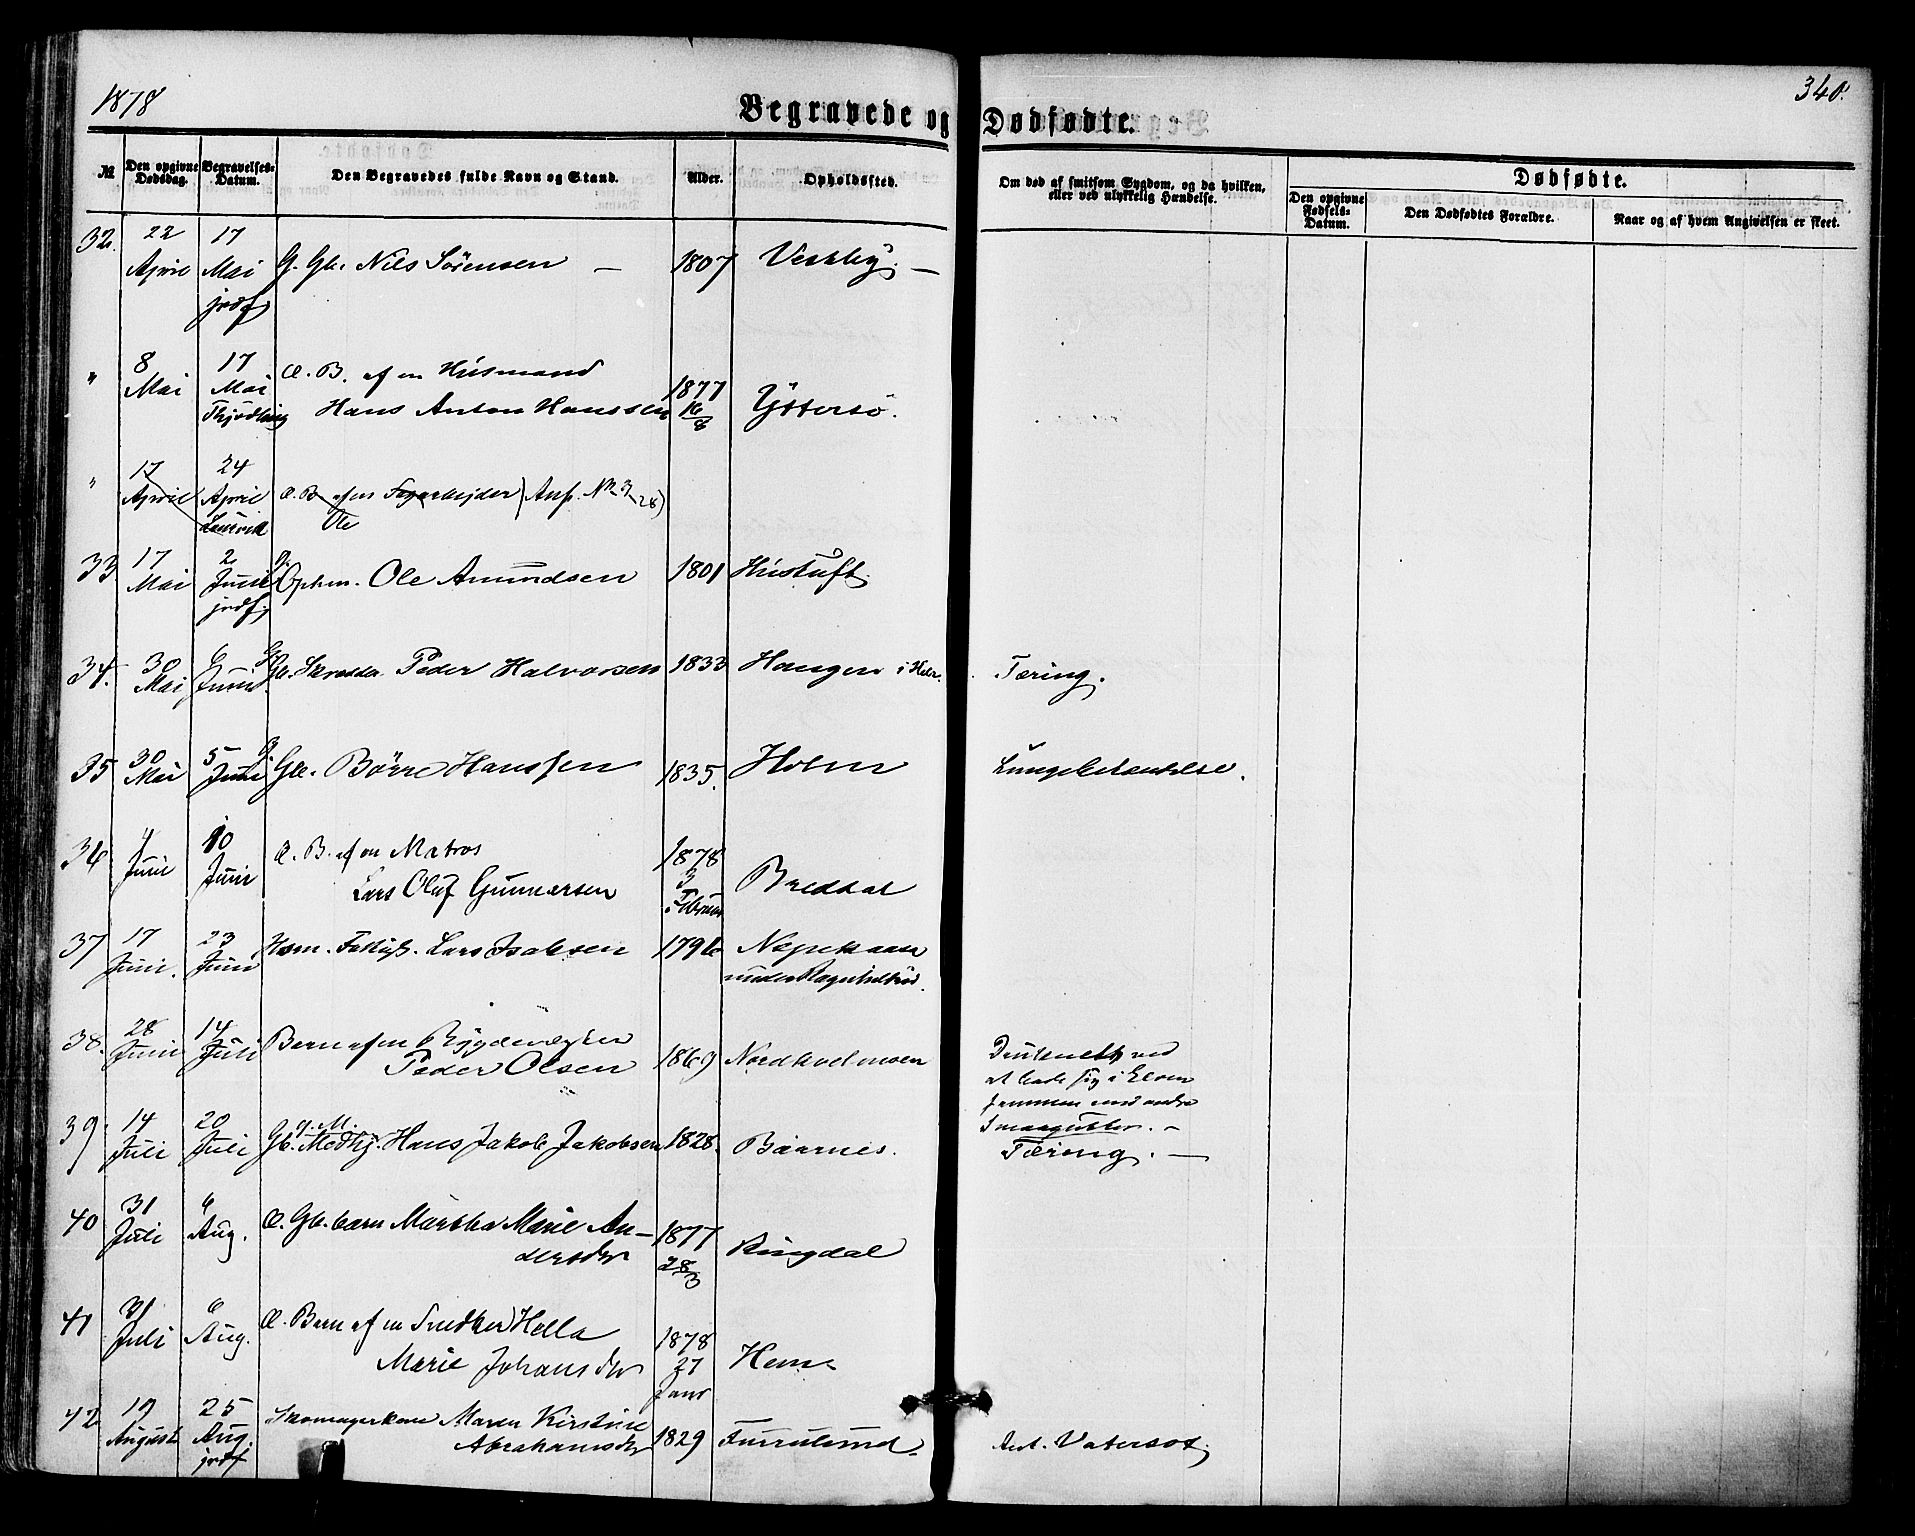 1878
Begravede og Dødfødte.
340.
№
Den opgivne Dødsdag.
Begravelses-Datum.
Den Begravedes fulde Navn og Stand.
Alder.
Opholdssted.
Om død af smitsom Sygdom, og da hvilken, eller ved ulykkelig Hændelse.
Dødfødte.
Den opgivne Fødsels-Datum.
Den Dødfødtes Forældre.
Naar og af hvem Angivelsen er skeet.
32. 22 April 17 Mai jrdf. G. Gb. Nils Sørensen — 1807 Vestby. —
" 8 Mai 17 Mai Thjødling Æ. B. af en Husmand
Hans Anton Hanssen 1877 16/8 Yttersö.
" 17 April 24 April Laurvik Æ. B. af en (Anf. Nr 28)
Ole
33 17 Mai 2 Juni jrdf. Ole Amundsen 1801 Hustuft.
34. 30 Mai 6 Juni G. Gb. Skrædder Peder Halvorsen 1833 Haugen i Hem. Tæring.
35 30 Mai 5 Juni G. Gb. Börre Hanssen 1835. Holm Lungebetændelse.
36 4 Juni 10 Juni Æ. B. af en Matros
Lars Oluf Gunnarsen 1878 3 Februar Breddal
37 17 Juni. 23 Juni Hsm. Fattigl. Lars Isaksen 1796
under
38. 28 Juni 14 Juli Barn af en
Peder Olsen 1869 Nordholmsen Druknett ved
at bade sig i Elven
sammen med andre
Smaagutter. —
39. 14 Juli 20 Juli Gb. g. M. Medhj. Hans Jakob Jakobsen 1828. Baarnes. Tæring. —
40 31 Juli 6 Aug. Æ. Gb. barn Martha Marie An-
dersdtr 1877 28/3 Ringdal
41 31 Juli 6 Aug. Æ. Barn af en Snedker Hella
Marie Johansdtr 1878 27 Janr Hem
42 19 August 25 Aug. jrdf Skomagerkone Maren Kirstine
Abrahamsdtr 1829 Furrulund. Ant. Vatersot.